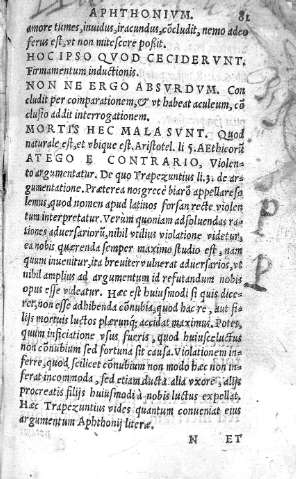 APHTHONIVM. 81
amore tumes, inuidus, iracundus, cōcludit, nemo adeo
ferus est, vt non mitescere possit.
HOC IPSO QVOD CECIDERVNT.
Firmamentum inductionis.
NON NE ERGO ABSVRDVM. Con
cludit per comparationem, & vt habeat aculeum, cō
clusio addit interrogationem.
MORTIS HEC MALA SVNT. Quod
naturale est, et vbique est, Aristotel. li 5. AEthicorū
AT EGO E CONTRARIO, Violen-
to argumentatur. De quo Trapezuntius li. 3. de ar-
gumentatione. Præterea nos grecè biæō appellare so
lemus, quod nomen apud latinos forsan recte violen
tum interpretatur. Verùm quoniam ad soluendas ra-
tiones aduersariorū, nihil vtilius violatione videtur,
ea nobis querenda semper maximo studio est, nam
quum inuenitur, ita breuiter vulnerat aduersarios, vt
nihil amplius ad argumentum id refutandum nobis
opus esse videatur. Hæc est huiusmodi si quis dice-
ret, non esse adhibenda cōnubia, quod hac re, aut fi-
lijs mortuis luctos plærunq; accidat maximus. Potes,
quum inficiatione vsus fueris, quod huiusce luctus
non cōnubium sed fortuna sit causa. Violationem in-
ferre, quod scilicet cōnubium non modo hæc non in-
ferat incommoda, sed etiam ducta alia vxore, alijs
procreatis filijs huiusmodi à nobis luctus expellat.
Hæc Trapezuntius vides quantum conueniat eius
argumentum Aphthonij literæ.
N ET